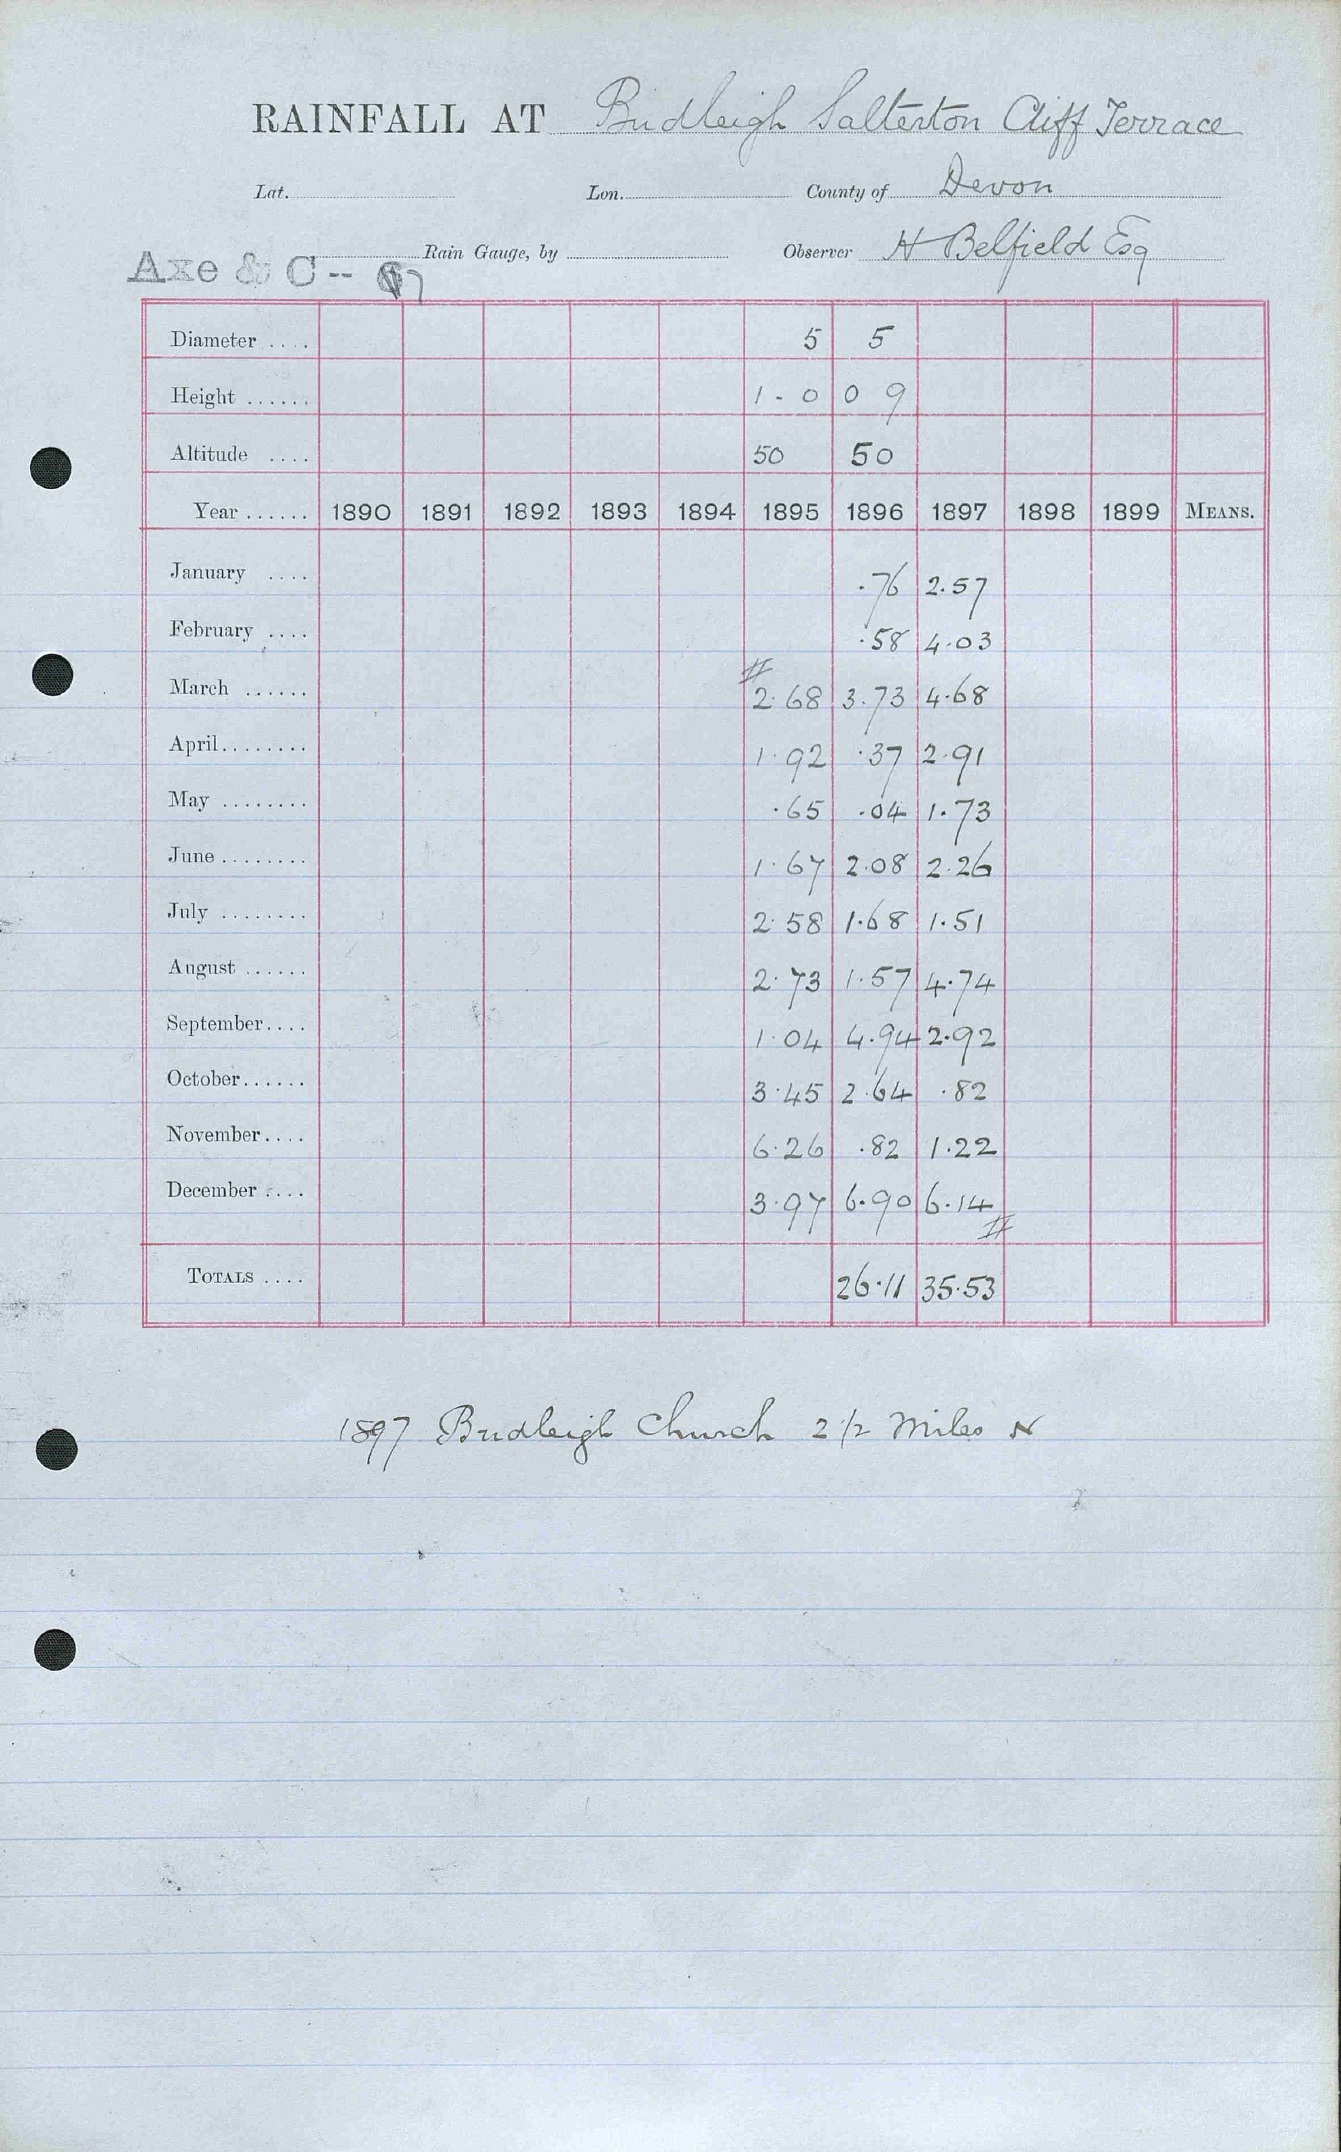 RAINFALL AT Budleigh Salterton Cliff Terrace
Lat. Lon. County of Devon
Rain Gauge, by Observer H Belfield Esq
Axe & C--
Diameter .... 5 5
Height ...... 1-0 0 9
Altitude .... 50 50
Year ...... 1890 1891 1892 1893 1894 1895 1896 1897 1898 1899 MEANS.
January .... .76 2.57
February .... .58 4.03
#
March ...... 2.68 3.73 4.68
April........ 1.92 .37 2.91
May ........ .65 .04 1.73
June ........ 1.67 2.08 2.26
July ........ 2.58 1.68 1.51
August ...... 2.73 1.57 4.74
September.... 1.04 4.94 2.92
October...... 3.45 2.64 .82
November.... 6.26 .82 1.22
December .... 3.97 6.90 6.14
#
TOTALS .... 26.11 35.53
1897 Budleigh Church 2 1/2 Miles N